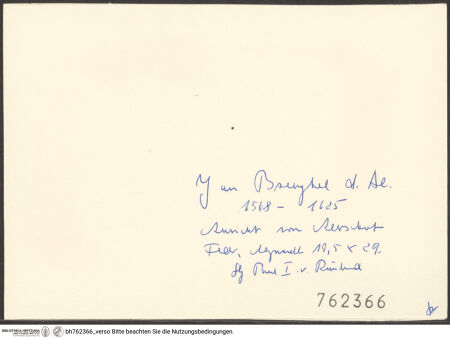 Jan Brueghel d. Ae.
1568 - 1625
Ansicht von Aerschot
Feder, Aquarell 19,5 x 29.
Slg Paul I. v.
762366
BIBLIOTHECA HERTZIANA
bh762366_verso Bitte beachten Sie die Nutzungsbedingungen.